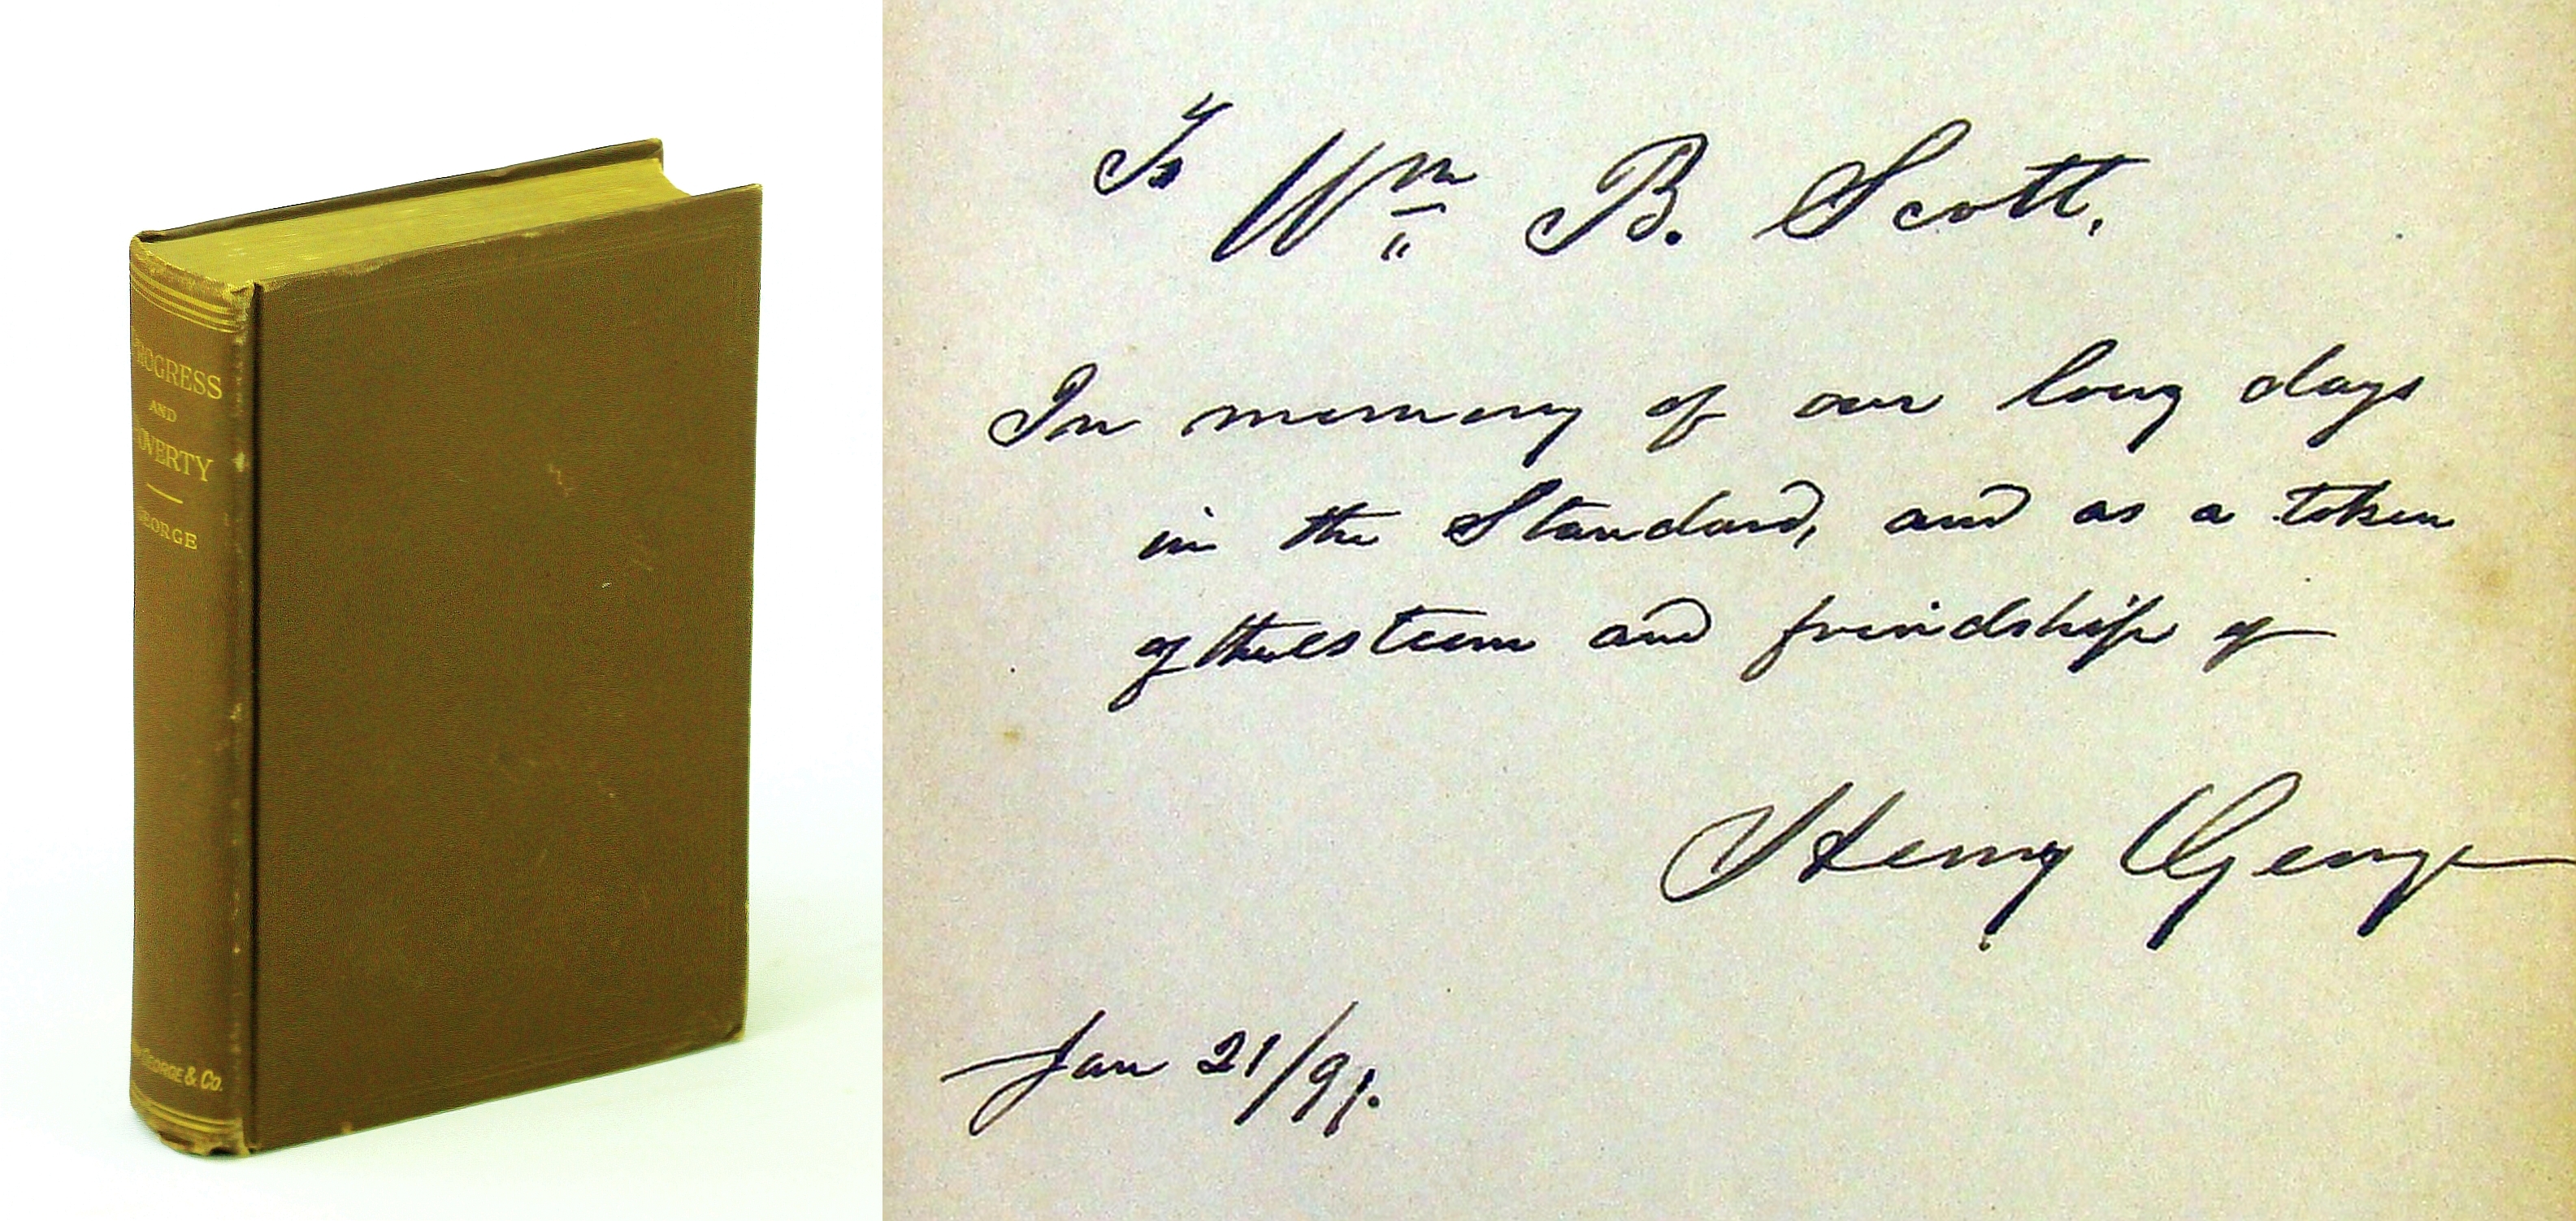 PROGRESS
AND
POVERTY
GEORGE
GEORGE & CO.
To Wm B. Scott.
In memory of our long days
in the Standard, and as a token
of the esteem and friendship of
Henry George
Jan 21/91.